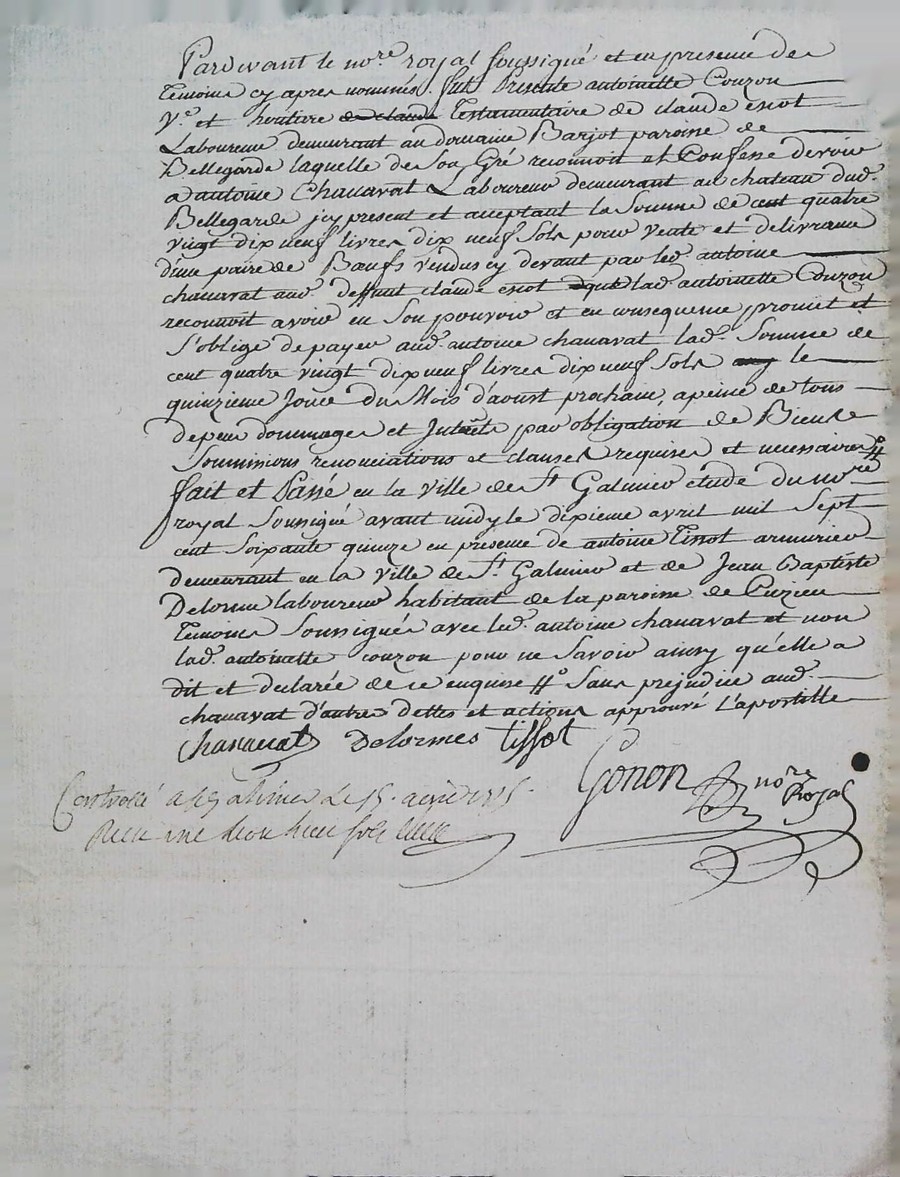 Pardevant le no.re royal soussigné et en presence des
temoins cy apres nommés. fut Presente antoinette Couzon
V.e et heritiere de claude Testamentaire de claude
Laboureur demeurant au domaine Barjot paroisse de
Bellegarde laquelle de son Gré reconnoit et Confesse devoir
a antoine Chanavat Laboureur demeurant au chateau dud.
Bellegarde jcy present et acceptant la Somme de cent quatre
vingt dix neuf livres dix neuf sols pour vente et delivrance
d'une paire de Bœufs vendus cy devant par led. antoine
chanavat aud. deffunt claude que lad. antoinette Couzon
reconnoit avoir en son pouvoir et en consequence promet et
s'oblige de payer aud. antoine chanavat lad. Somme de
cent quatre vingt dix neuf livres dix neuf sols le
quinzieme Jour du Mois d'aoust prochain, a peine de tous
depens dommages et Jnterets par obligation de Biens
Soumissions renonciations et clauses requises et necessaires #.o
fait et Passé en la ville de S.t Galmier etude du no.re
royal Soussigné avant midy le dixieme avril mil Sept
cent Soixante quinze en presence de antoine Tissot armurier
demeurant en la ville de S.t Galmier et de Jean Baptiste
Delorme laboureur habitant de la paroisse de Cuzieu
temoins Soussignés avec led. antoine chanavat et non
lad. antoinette couzon pour ne Savoir ainsy qu'elle a
dit et declarée de ce enquise #.o Sans prejudice aud.
chanavat d'autres dettes et actions approuvé l'apostille
Chanavat Delormes tissot
Gonon no.re Royal
Controllé a St galmier Le 15. avril 1775.
Recu une livre huit sols